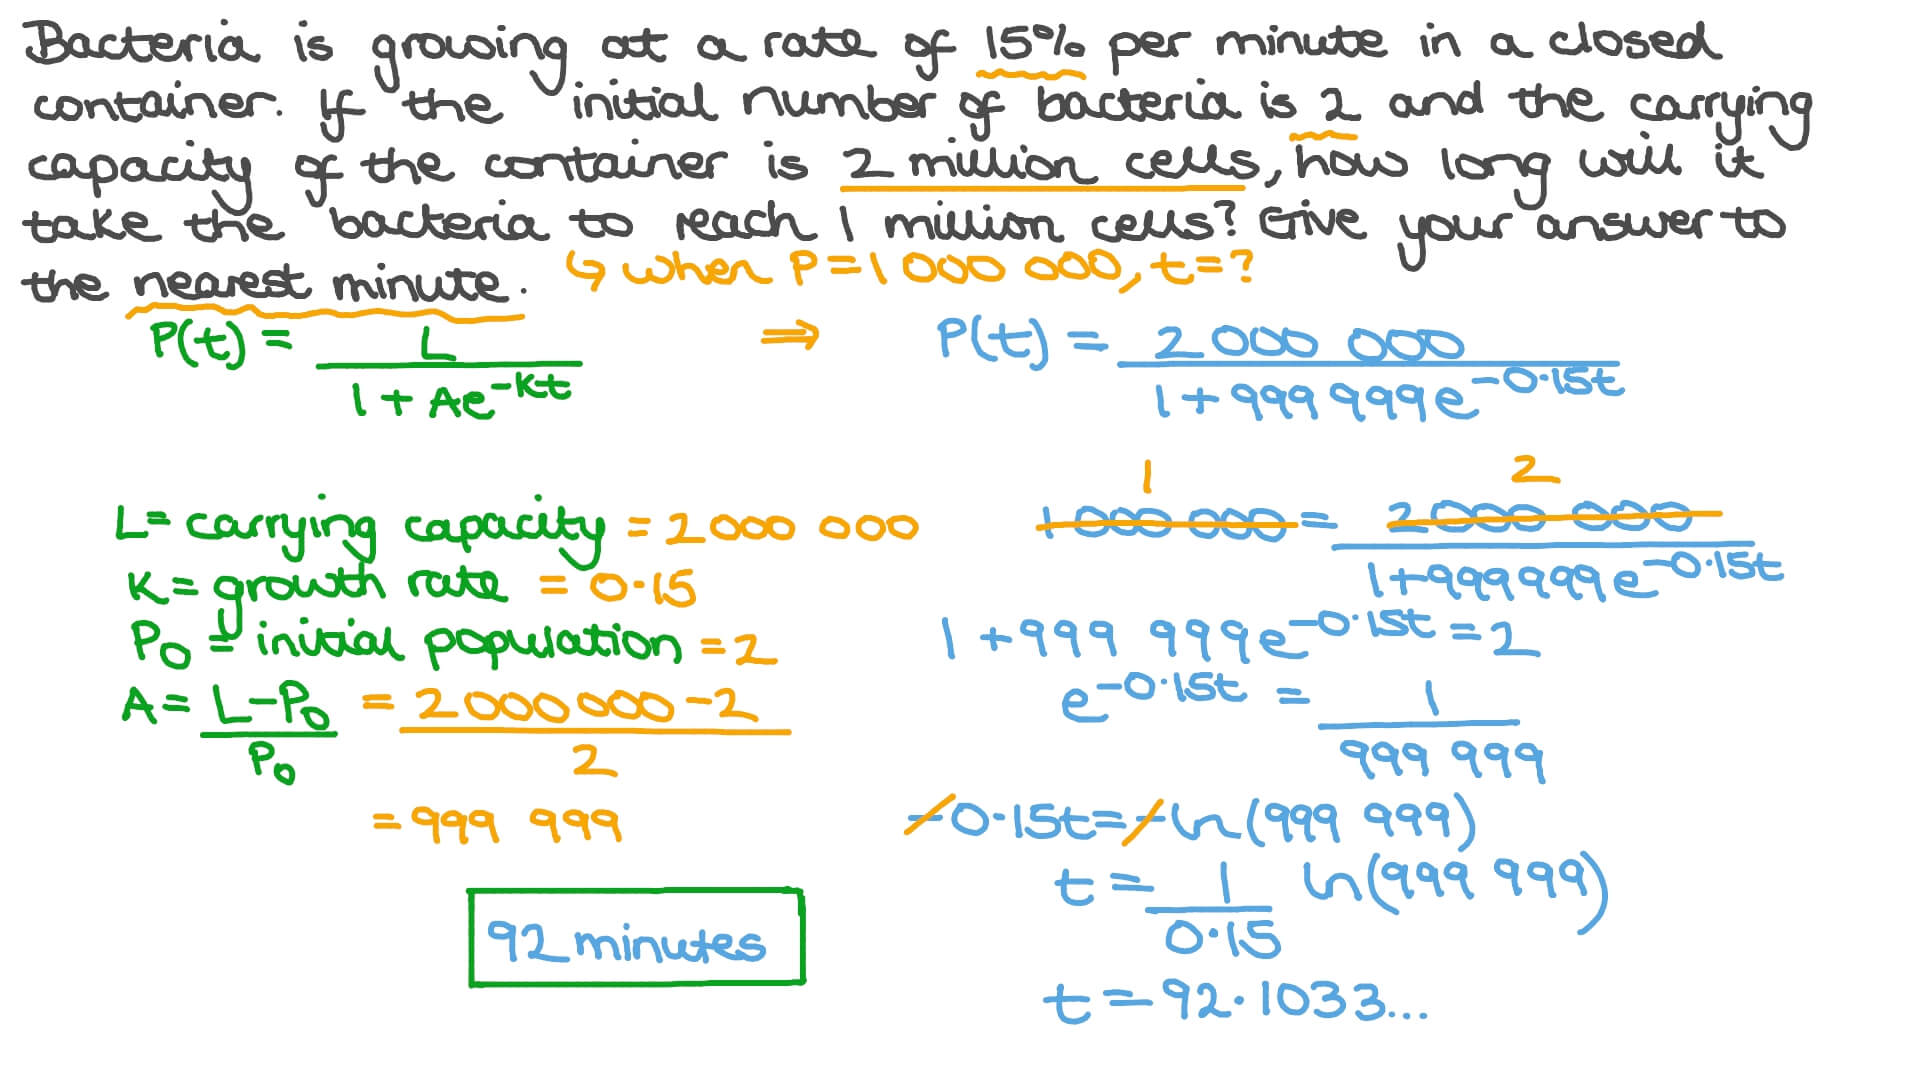 Bacteria is growing at a rate of 15% per minute in a closed
container. If the initial number of bacteria is 2 and the carrying
capacity of the container is 2 million cells, how long will it
take the bacteria to reach 1 million cells? Give your answer to
the nearest minute. ↳ when P=1 000 000, t=?
P(t) = L / (1 + Ae^(-kt)) ⇒ P(t) = 2 000 000 / (1 + 999 999e^(-0.15t))
L = carrying capacity = 2 000 000
k = growth rate = 0.15
P₀ = initial population = 2
A = (L-P₀)/P₀ = (2 000 000 - 2)/2
= 999 999
1
2
1 000 000 = 2 000 000 / (1+999 999e^(-0.15t))
1 + 999 999e^(-0.15t) = 2
e^(-0.15t) = 1/999 999
-0.15t = -ln(999 999)
t = 1/0.15 ln(999 999)
t = 92.1033...
92 minutes